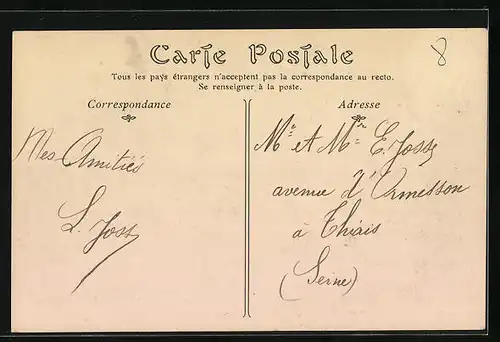 Carte Postale
8
Tous les pays étrangers n'acceptent pas la correspondance au recto.
Se renseigner à la poste.
Correspondance
Mes Amitiés
L. Joss
Adresse
Mr et Mme E. Joss
avenue d'Ormesson
à Thiais
(Seine)